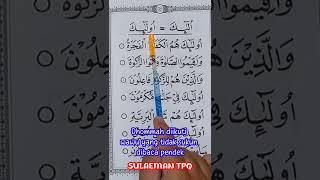 اُلٰٓئِكَ = اُولٰٓئِكَ
اُولٰٓئِكَ هُمُ الْكَفَرَةُ الْفَجَرَةُ
وَاَقِيْمُوا الصَّلٰوةَ وَاٰتُوا الزَّكٰوةَ
وَالَّذِيْنَ هُمْ لِلزَّكٰوةِ فَاعِلُوْنَ
اُولٰٓئِكَ فِيْ جَنّٰتٍ مُّكْرَمُوْنَ
اُولٰٓئِكَ هُمْ الْبَرِيَّةِ
Dhommah diikuti
wawu yang tidak sukun
dibaca pendek
SULAEMAN TPQ